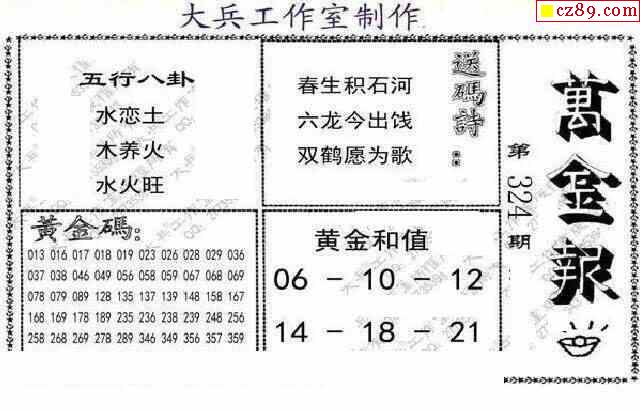 大兵工作室制作
cz89.com
五行八卦
水恋土
木养火
水火旺
送碼詩：
春生积石河
六龙今出饯
双鹤愿为歌
萬金報
第324期
黃金碼：
013 016 017 018 019 023 026 028 029 036
037 038 046 049 056 057 058 067 068 069
078 079 089 128 135 137 139 148 158 167
168 169 178 189 235 236 238 239 248 256
258 268 269 278 289 346 349 356 359 369
黄金和值
06 - 10 - 12
14 - 18 - 21